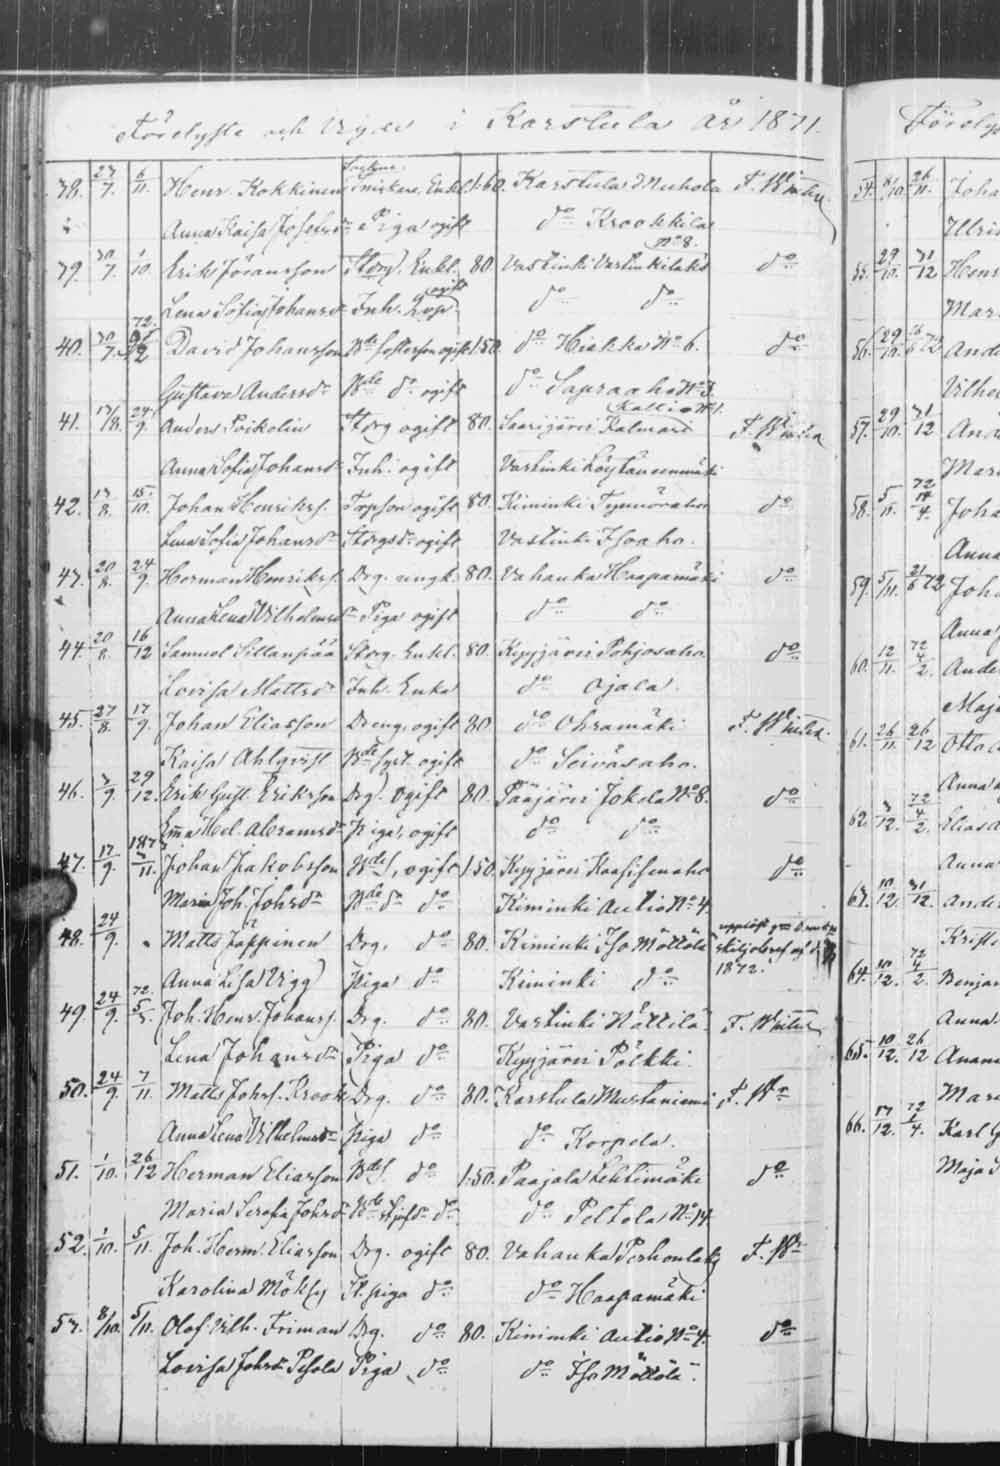 Förelyste och Vigde i Karstula År 1871.
38. 23/7. 6/11. Henr. Kokkinen Sockne Enkl. 1:60. Karstula Muhola F. Winter
Anna Kaisa Josefsdr Piga ogift do Krookkila
39. 30/7. 1/10. Erik Göransson Storg. Enkl. 80. Vastinki Vastinkilaks No 8. do
Lena Sofia Johansdr Inh. ogift do do
40. 30/7. 72. David Johansson Bde fosterson ogift 1:50. do Hiekka No 6. do
Gustava Andersdr Bde do ogift do Sapraaho No 3.
41. 13/8. 24/9. Anders Poikolin Storg ogift 80. Saarijärvi Kalmari Kallio No 1. F. Winter
Anna Sofia Johansdr Inh. ogift Vastinki Löytänenmäki
42. 13/8. 15/10. Johan Henrikss. Torpson ogift 80. Kiminki Tynnöraho do
Lena Sofia Johansdr Storgsdr ogift Vastinki Isoaho.
43. 20/8. 24/9. Herman Henrikss. Drg. ungk. 80. Vahanka Haapamäki do
Anna Lena Vilhelmsdr Piga ogift do do
44. 20/8. 16/12 Samuel Sillanpää Storg. Enkl. 80. Kyyjärvi Pohjosaho. do
Lovisa Mattsdr Inh. Enka do Ojala.
45. 27/8. 17/9. Johan Eliasson Dreng. ogift 80 do Ohramäki F. Winter.
Kaisa Ahlqvist Bde syst. ogift do Seiväsaho.
46. 3/9. 29/12. Erik Gust. Eriksson Drg. ogift 80. Pääjärvi Jokela No 8. do
Emma Hel. Abramsdr Piga, ogift do do
47. 17/9. 187 /11. Johan Jakobsson Bdes, ogift 1:50. Kyyjärvi Kaasisenaho do
Maria Joh. Johsdr Bde dr do Kiminki Autio No 4.
48. 24/9. Matts Jäppinen Drg. do 80. Kiminki Iso Möttölä upplöst 1872.
Anna Lisa Vigg Piga do Kiminki do
49. 24/9. 72. 5/ Joh. Henr. Johanss. Drg. do 80. Vastinki Hättilä F. Winter
Lena Johansdr Piga do Kyyjärvi Pölkki.
50. 24/9. 7/11. Matts Johs. Krook Drg. do 80. Karstula Mustaniemi F. Wr
Anna Lena Vilhelmsdr Piga do do Korpela.
51. 1/10. 26/12 Herman Eliasson Bdes. do 1:50. Paajala Lehtimäki do
Maria Serafia Johsdr Bde styfdr do do Peltola No 14
52. 1/10. 5/11. Joh. Herm. Eliasson Drg. ogift 80. Vahanka Perhonlaks F. Wr
Karolina Möksy St. piga do do Haapamäki
53. 8/10. 5/11. Olof Vilh. Friman Drg. do 80. Kiminki Autio No 4. do
Lovisa Johsdr Pesola Piga do do Iso Möttölä.
Förelys
54. /10. 26/11. Joha
Ulrik
55. 29/10. 31/12 Henr
Mar
56. 29/10. 72 Ande
Vilhe
57. 29/10. 31/12 And
Mari
58. 5/11. 72 14/4. Joha
Anna
59. 5/11. 21/6 72 Joha
Anna
60. 12/11. 72 4/2. Ande
Maja
61. 26/11 26/12 Otto
Anna
62. 3/12. 72 4/2. Elias
Anna
63. 10/12. 31/12. Ande
Krist
64. 10/12. 72 4/2. Benjam
Anna
65. 10/12. 26/12 Anan
Mari
66. 17/12. 72 1/4. Karl G
Maja